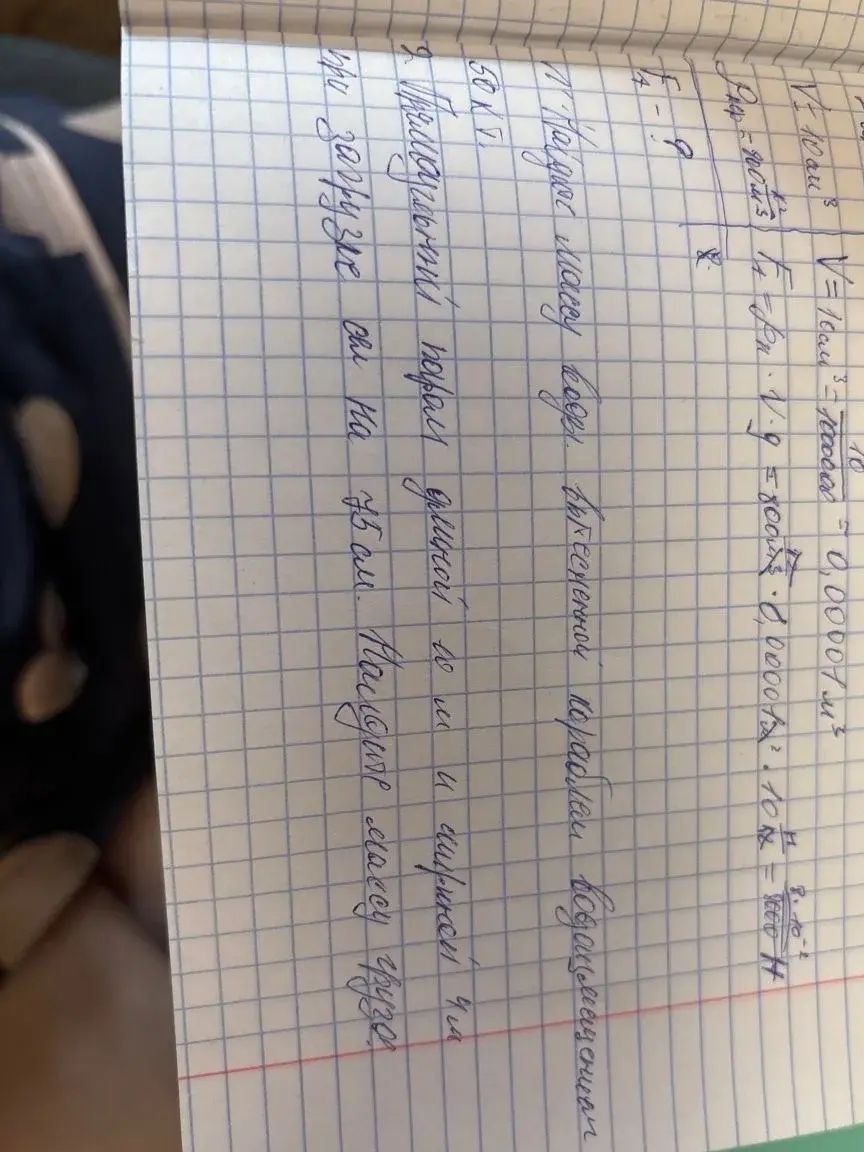 V = 10 см³ V = 10 см³ = 10/1000000 = 0,00001 м³
ρ = 800 кг/м³ F_A = ρж · V · g = 800 кг/м³ · 0,00001 м³ · 10 Н/кг = 8·10⁻² Н
F_A - ?
Найдите массу воды вытесненной кораблем водоизмещением
50 кт.
2. Прямоугольный паром длиной 10 м и шириной 4 м
при загрузке сел на 75 см. Найдите массу груза.